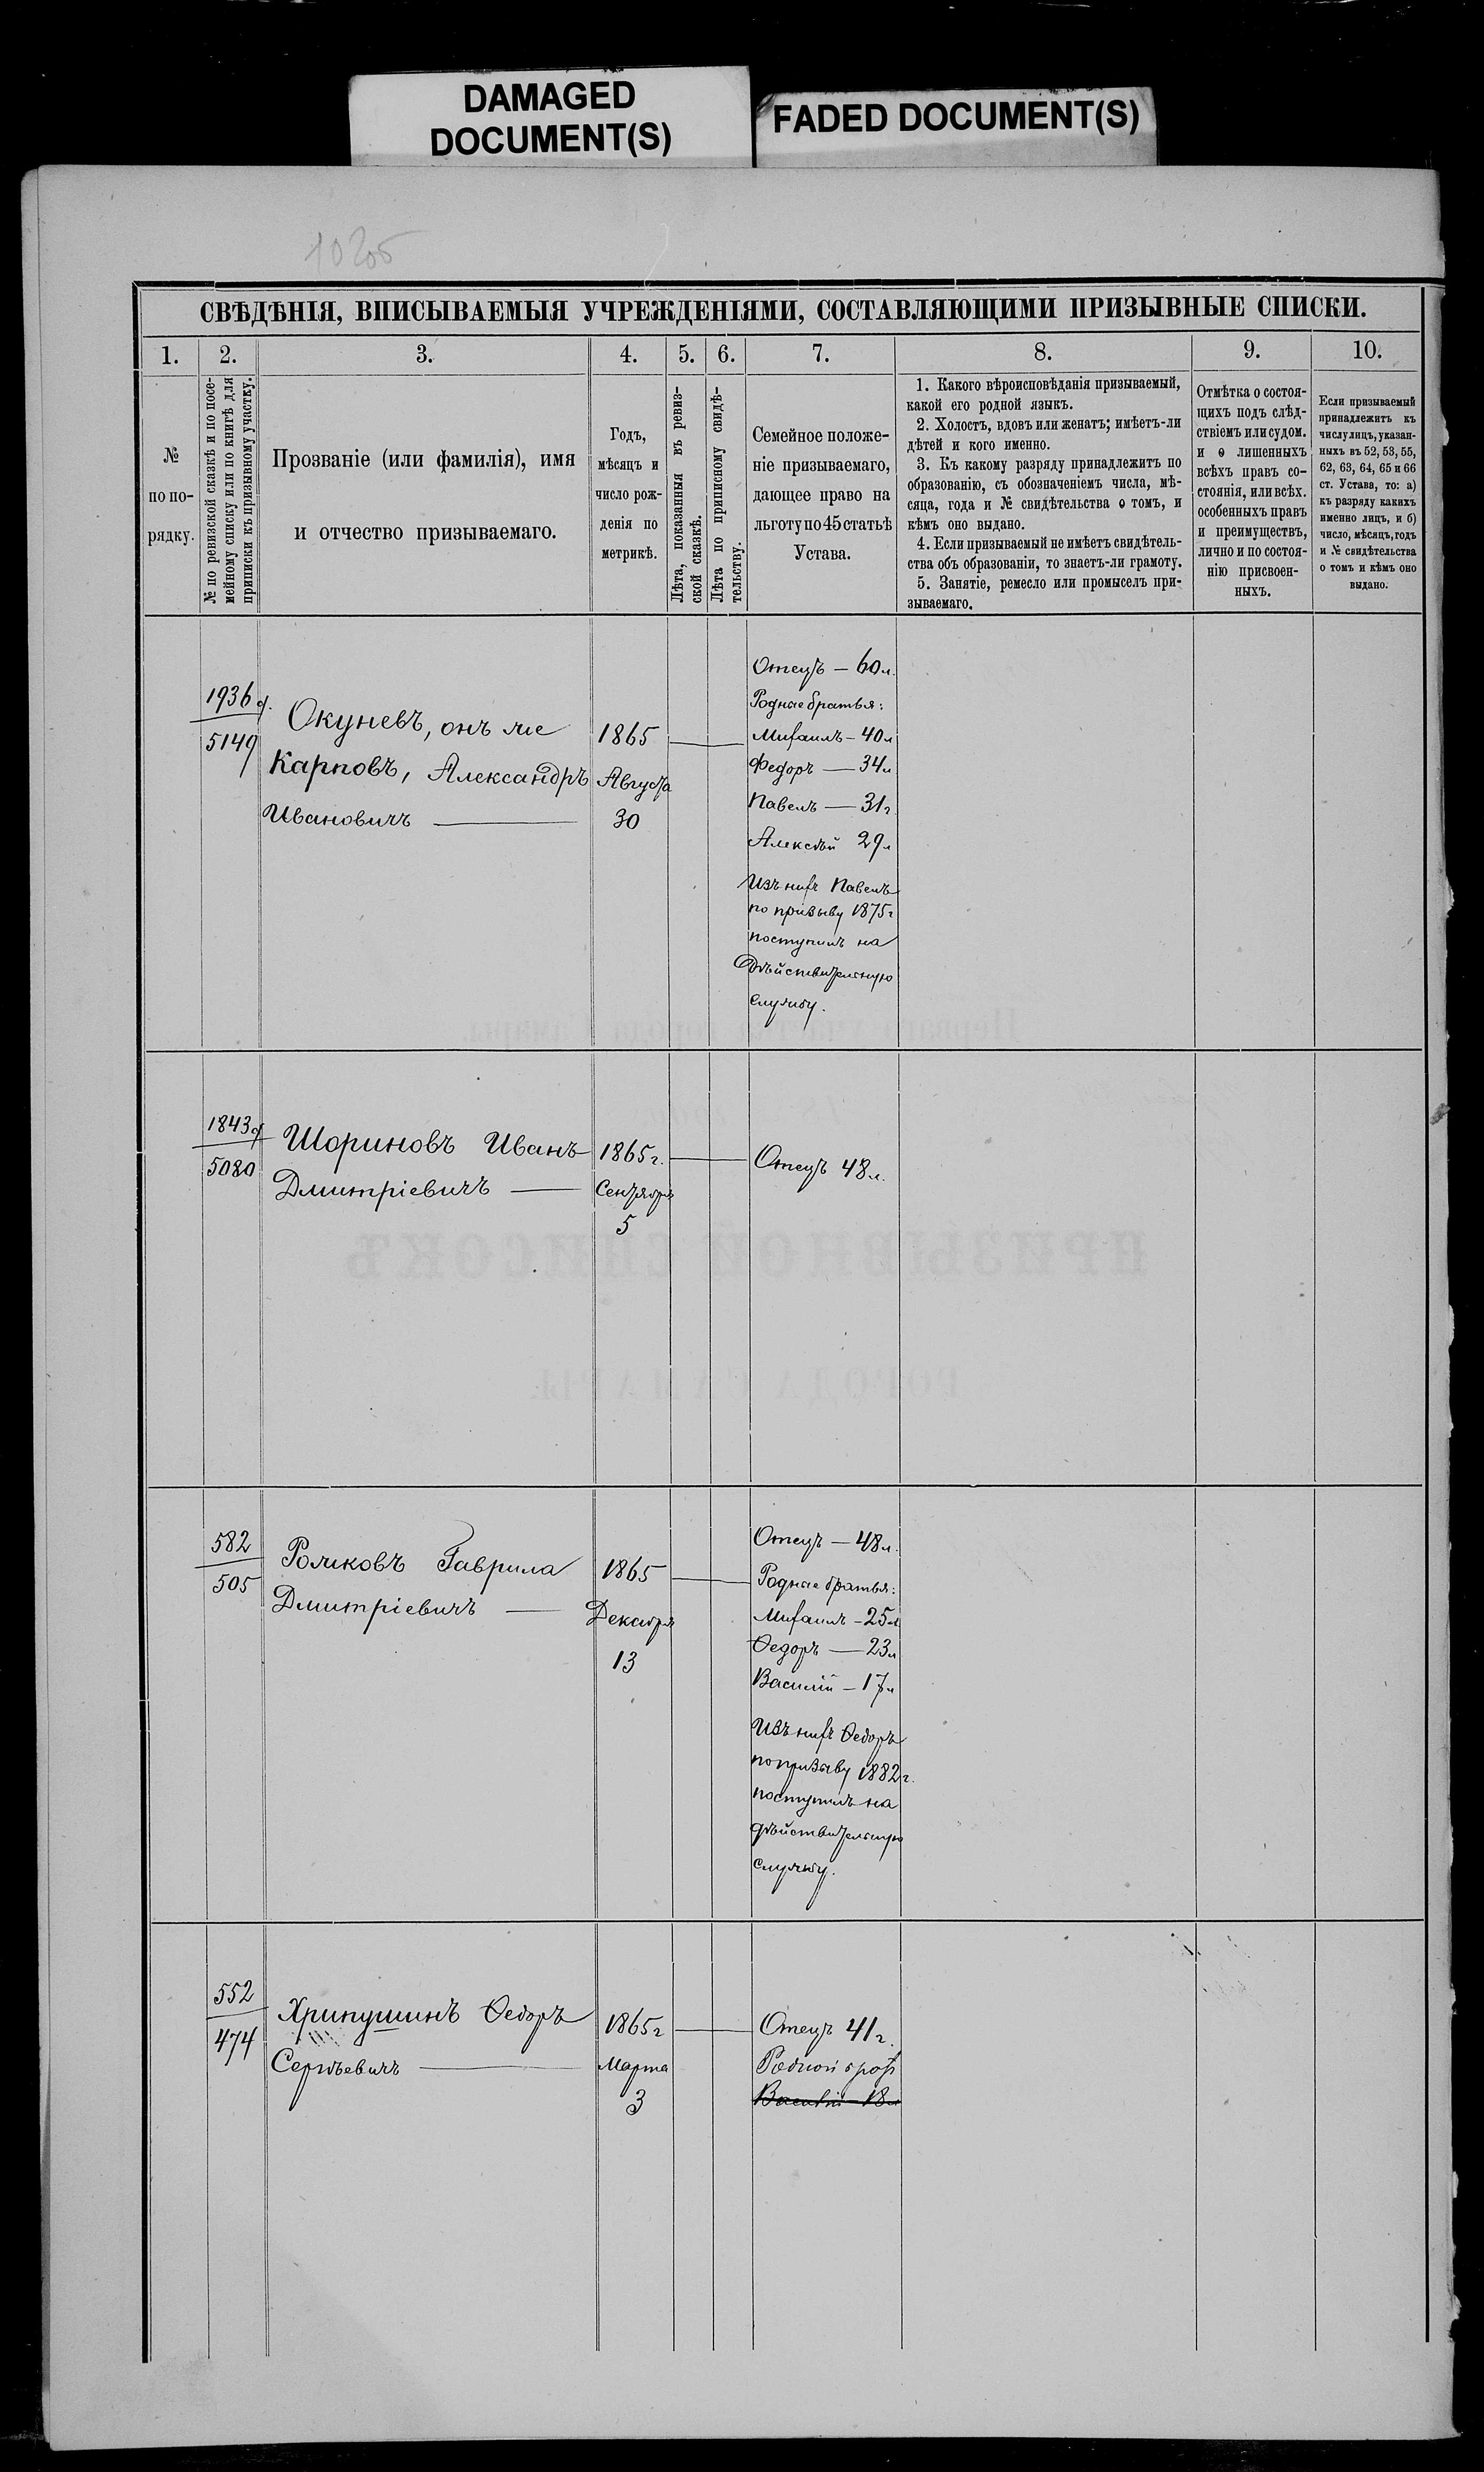 DAMAGED
DOCUMENT(S)
FADED DOCUMENT(S)
10205
СВѢДѢНІЯ, ВПИСЫВАЕМЫЯ УЧРЕЖДЕНІЯМИ, СОСТАВЛЯЮЩИМИ ПРИЗЫВНЫЕ СПИСКИ.
1. 2. 3. 4. 5. 6. 7. 8. 9. 10.
№
по по-
рядку.
№ по ревизской сказкѣ и по посе-
мейному списку или по книгѣ для
приписки къ призывному участку.
Прозваніе (или фамилія), имя
и отчество призываемаго.
Годъ,
мѣсяцъ и
число рож-
денія по
метрикѣ.
Лѣта, показанныя въ ревиз-
ской сказкѣ.
Лѣта по приписному свидѣ-
тельству.
Семейное положе-
ніе призываемаго,
дающее право на
льготу по 45 статьѣ
Устава.
1. Какого вѣроисповѣданія призываемый,
какой его родной языкъ.
2. Холостъ, вдовъ или женатъ; имѣетъ-ли
дѣтей и кого именно.
3. Къ какому разряду принадлежитъ по
образованію, съ обозначеніемъ числа, мѣ-
сяца, года и № свидѣтельства о томъ, и
кѣмъ оно выдано.
4. Если призываемый не имѣетъ свидѣтель-
ства объ образованіи, то знаетъ-ли грамоту.
5. Занятіе, ремесло или промыселъ при-
зываемаго.
Отмѣтка о состоя-
щихъ подъ слѣд-
ствіемъ или судом.
и о лишенныхъ
всѣхъ правъ со-
стоянія, или всѣх.
особенныхъ правъ
и преимуществъ,
лично и по состоя-
нію присвоен-
ныхъ.
Если призываемый
принадлежитъ къ
числу лицъ, указан-
ныхъ въ 52, 53, 55,
62, 63, 64, 65 и 66
ст. Устава, то: а)
къ разряду какихъ
именно лицъ, и б)
число, мѣсяцъ, годъ
и № свидѣтельства
о томъ и кѣмъ оно
выдано.
1936
5149
Окуневъ, онъ же
Карповъ, Александръ
Ивановичъ
1865
Августа
30
Отецъ — 60 л.
Родные братья:
Михаилъ — 40 л
Федоръ — 34 л
Павелъ — 31 г
Алексѣй 29 л
Изъ нихъ Павелъ
по призыву 1875 г
поступилъ на
Дѣйствительную
службу.
1843
5080
Шориновъ Иванъ
Дмитріевичъ
1865 г.
Сентября
5
Отецъ 48 л.
582
505
Рожковъ Гаврила
Дмитріевичъ
1865
Декабря
13
Отецъ — 48 л.
Родные братья:
Михаилъ — 25 л
Ѳедоръ — 23 л
Василій — 17 л
Изъ нихъ Ѳедоръ
по призыву 1882 г.
поступилъ на
дѣйствительную
службу.
552
474
Хрипушинъ Ѳедоръ
Сергѣевичъ
1865 г
Марта
3
Отецъ 41 г.
Родной братъ
Василій — 18 л